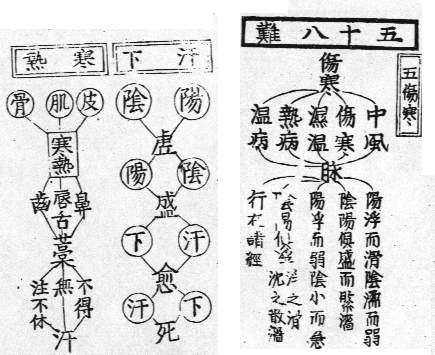 五十八難
五傷寒
傷寒
中風
傷寒
濕温
熱病
温病
脉
陽浮而滑陰濡而弱
陰陽俱盛而緊濇
陽浮而弱陰小而急
之滑
沈之散濇
行在諸經
汗下
陽
陰
虚
陰
陽
盛
汗
下
愈
下
汗
死
寒熱
皮
肌
骨
寒熱
鼻
唇舌
齒
藁
不得
無
注不休
汗